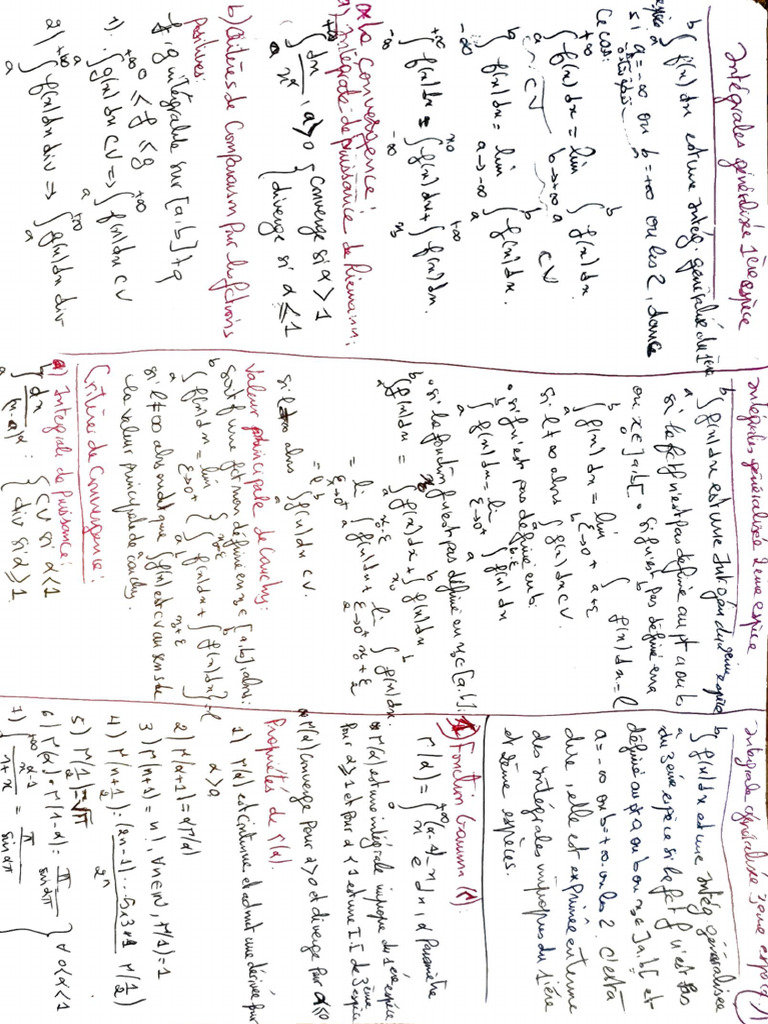 Intégrales généralisée 1ère espèce
∫_a^b f(x)dx est une intég. généralisé du 1ère
espèce si a=-∞ ou b=+∞ ou les 2, dans
ce cas:
∫_a^{+∞} f(x)dx = lim_{b→+∞} ∫_a^b f(x)dx.
CV CV
∫_{-∞}^b f(x)dx = lim_{a→-∞} ∫_a^b f(x)dx.
∫_{-∞}^{+∞} f(x)dx = ∫_{-∞}^{x0} f(x)dx + ∫_{x0}^{+∞} f(x)dx.
de la convergence:
a) Intégrale de Puissance de Riemann:
∫_a^{+∞} dx/x^α, a>0 { converge si α>1
diverge si α≤1
b) Critères de Comparaison Par les fonctions
positives:
f,g intégrable sur [a,b] tq
0 ≤ f ≤ g
1). ∫_a^{+∞} g(x)dx CV ⇒ ∫_a^{+∞} f(x)dx CV
2) ∫_a^{+∞} f(x)dx div ⇒ ∫_a^{+∞} g(x)dx div
Intégrales généralisée 2ème espèce
∫_a^b f(x)dx est une intég du 2ème espèce
si la fct f n'est pas définie au pt a ou b
ou x0∈]a,b[. • si f n'est pas définie en a
∫_a^b f(x)dx = lim_{ε→0+} ∫_{a+ε}^b f(x)dx = l
si l≠∞ alors ∫_a^b f(x)dx CV.
• si f n'est pas définie en b.
∫_a^b f(x)dx = lim_{ε→0+} ∫_a^{b-ε} f(x)dx
• si la fonction f n'est pas définie en x0∈[a,b]:
∫_a^b f(x)dx = ∫_a^{x0} f(x)dx + ∫_{x0}^b f(x)dx
= lim_{ε→0+} ∫_a^{x0-ε} f(x)dx + lim_{ε→0+} ∫_{x0+ε}^b f(x)dx.
= l
si l≠∞ alors ∫_a^b f(x)dx CV.
Valeur principale de Cauchy:
soit f une fct non définie en x0∈[a,b], alors:
∫_a^b f(x)dx = lim_{ε→0+} { ∫_a^{x0-ε} f(x)dx + ∫_{x0+ε}^b f(x)dx } = l
si l≠∞ alors on dit que ∫_a^b f(x) est CV au sens de
la valeur principale de Cauchy.
Critère de Convergence:
a) Intégrale de Puissance:
∫_a^b dx/(x-a)^α : { CV si α<1
div si α≥1
Intégrale généralisée 3ème espèce
∫_a^b f(x)dx est une intég généralisée
du 3ème espèce si la fct f n'est pas
définie au pt a ou b ou x0∈]a,b[ et
a=-∞ ou b=+∞ ou les 2. c'est à
dire, elle est exprimée en terme
des intégrales impropres du 1ère
et 2ème espèces.
Fonction Gamma (Γ):
Γ(α) = ∫_0^{+∞} x^{(α-1)} e^{-x} dx, α Paramètre
Γ(α) est une intégrale impropre du 1ère espèce
Pour α≥1 et Pour α<1 est une I.I de 3ème espèce
Γ(α) converge Pour α>0 et diverge Pour α≤0
Propriétés de Γ(α).
1) Γ(α) est continue et admet une dérivée pour
α>0
2) Γ(α+1) = αΓ(α)
3) Γ(n+1) = n!, ∀n∈ℕ, Γ(1)=1
4) Γ(n+1/2) : (2n-1)...5×3×1/2^n Γ(1/2)
5) Γ(1/2) = √π
6) Γ(α)·Γ(1-α) : π/sin απ } ∀ 0<α<1
7) ∫_0^{+∞} x^{α-1}/(1+x) = π/sin απ